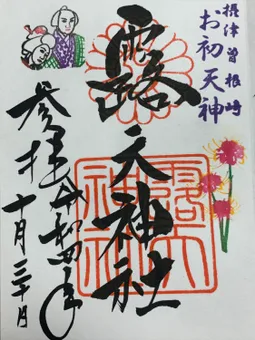 摂津曽根崎
お初天神
露天神社
参拝
令和四年
十月三十日
露天
神社